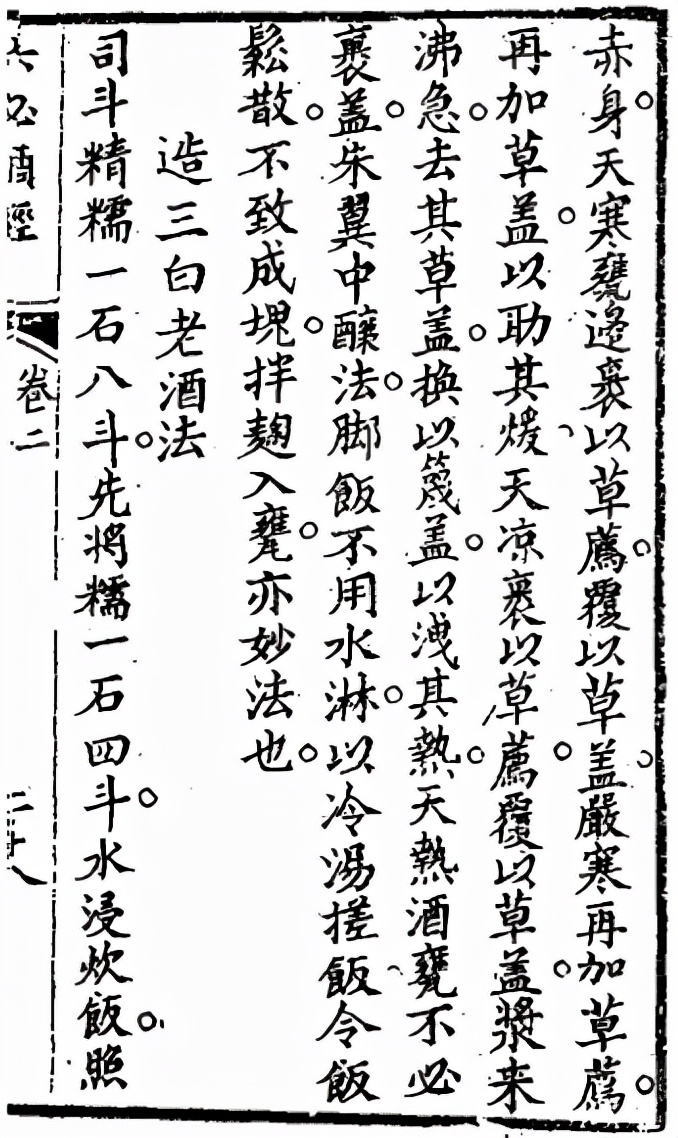 赤身天寒甕邉裹以草薦覆以草盖嚴寒再加草薦
再加草盖以助其煖天凉裹以草薦覆以草盖漿来
沸急去其草盖換以篾盖以洩其熱天熱酒甕不必
裹盖朱翼中釀法脚飯不用水淋以冷湯搓飯令飯
鬆散不致成塊拌麯入甕亦妙法也
造三白老酒法
司斗精糯一石八斗先将糯一石四斗水浸炊飯照
必酒經
卷二
二十八